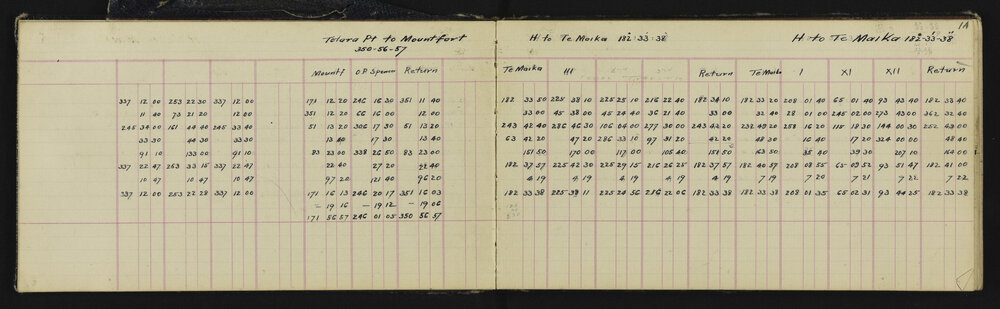 Totara Pt to Mountfort
350-56-57
Mountf O.P Spencer Return
337 12 00 253 22 30 337 12 00 171 12 20 246 16 30 351 11 40
11 40 73 21 20 12 00 351 12 20 66 16 00 12 30
245 34 00 161 44 40 245 33 40 51 13 20 306 17 30 51 13 20
33 30 44 30 33 30 13 40 17 30 13 40
91 10 133 00 91 10 83 23 00 338 26 50 83 23 00
337 22 47 263 33 15 337 22 47 22 40 27 20 22 40
10 47 10 47 10 47 97 20 121 40 96 20
337 12 00 253 22 28 337 12 00 171 16 13 246 20 17 351 16 03
- 19 16 - 19 12 - 19 06
171 56 57 246 01 05 350 56 57
1A
H to Te Maika 182°33'38"
H to Te Maika 182°-33'-38"
Te Maika III Return Te Maika I XI XII Return
182 33 50 225 38 10 225 25 10 216 22 40 182 34 10 182 33 20 208 01 40 65 01 40 93 43 40 182 33 40
33 00 45 38 00 45 24 40 36 21 40 33 00 32 40 28 01 00 245 02 00 273 43 00 362 32 40
243 42 40 286 46 30 106 04 00 277 30 00 243 42 20 232 49 20 258 16 20 115 18 30 144 00 30 252 43 00
63 42 20 47 20 286 33 10 97 31 20 42 20 48 30 16 20 17 30 324 00 00 48 40
151 50 170 00 117 00 105 40 151 50 163 50 35 40 39 30 207 10 164 00
182 37 57 225 42 30 225 29 15 216 26 25 182 37 57 182 40 57 208 08 55 65 09 52 93 51 47 182 41 00
4 19 4 19 4 19 4 19 4 19 7 19 7 20 7 21 7 22 7 22
182 33 38 225 38 11 225 24 56 216 22 06 182 33 38 182 33 38 208 01 35 65 02 31 93 44 25 182 33 38